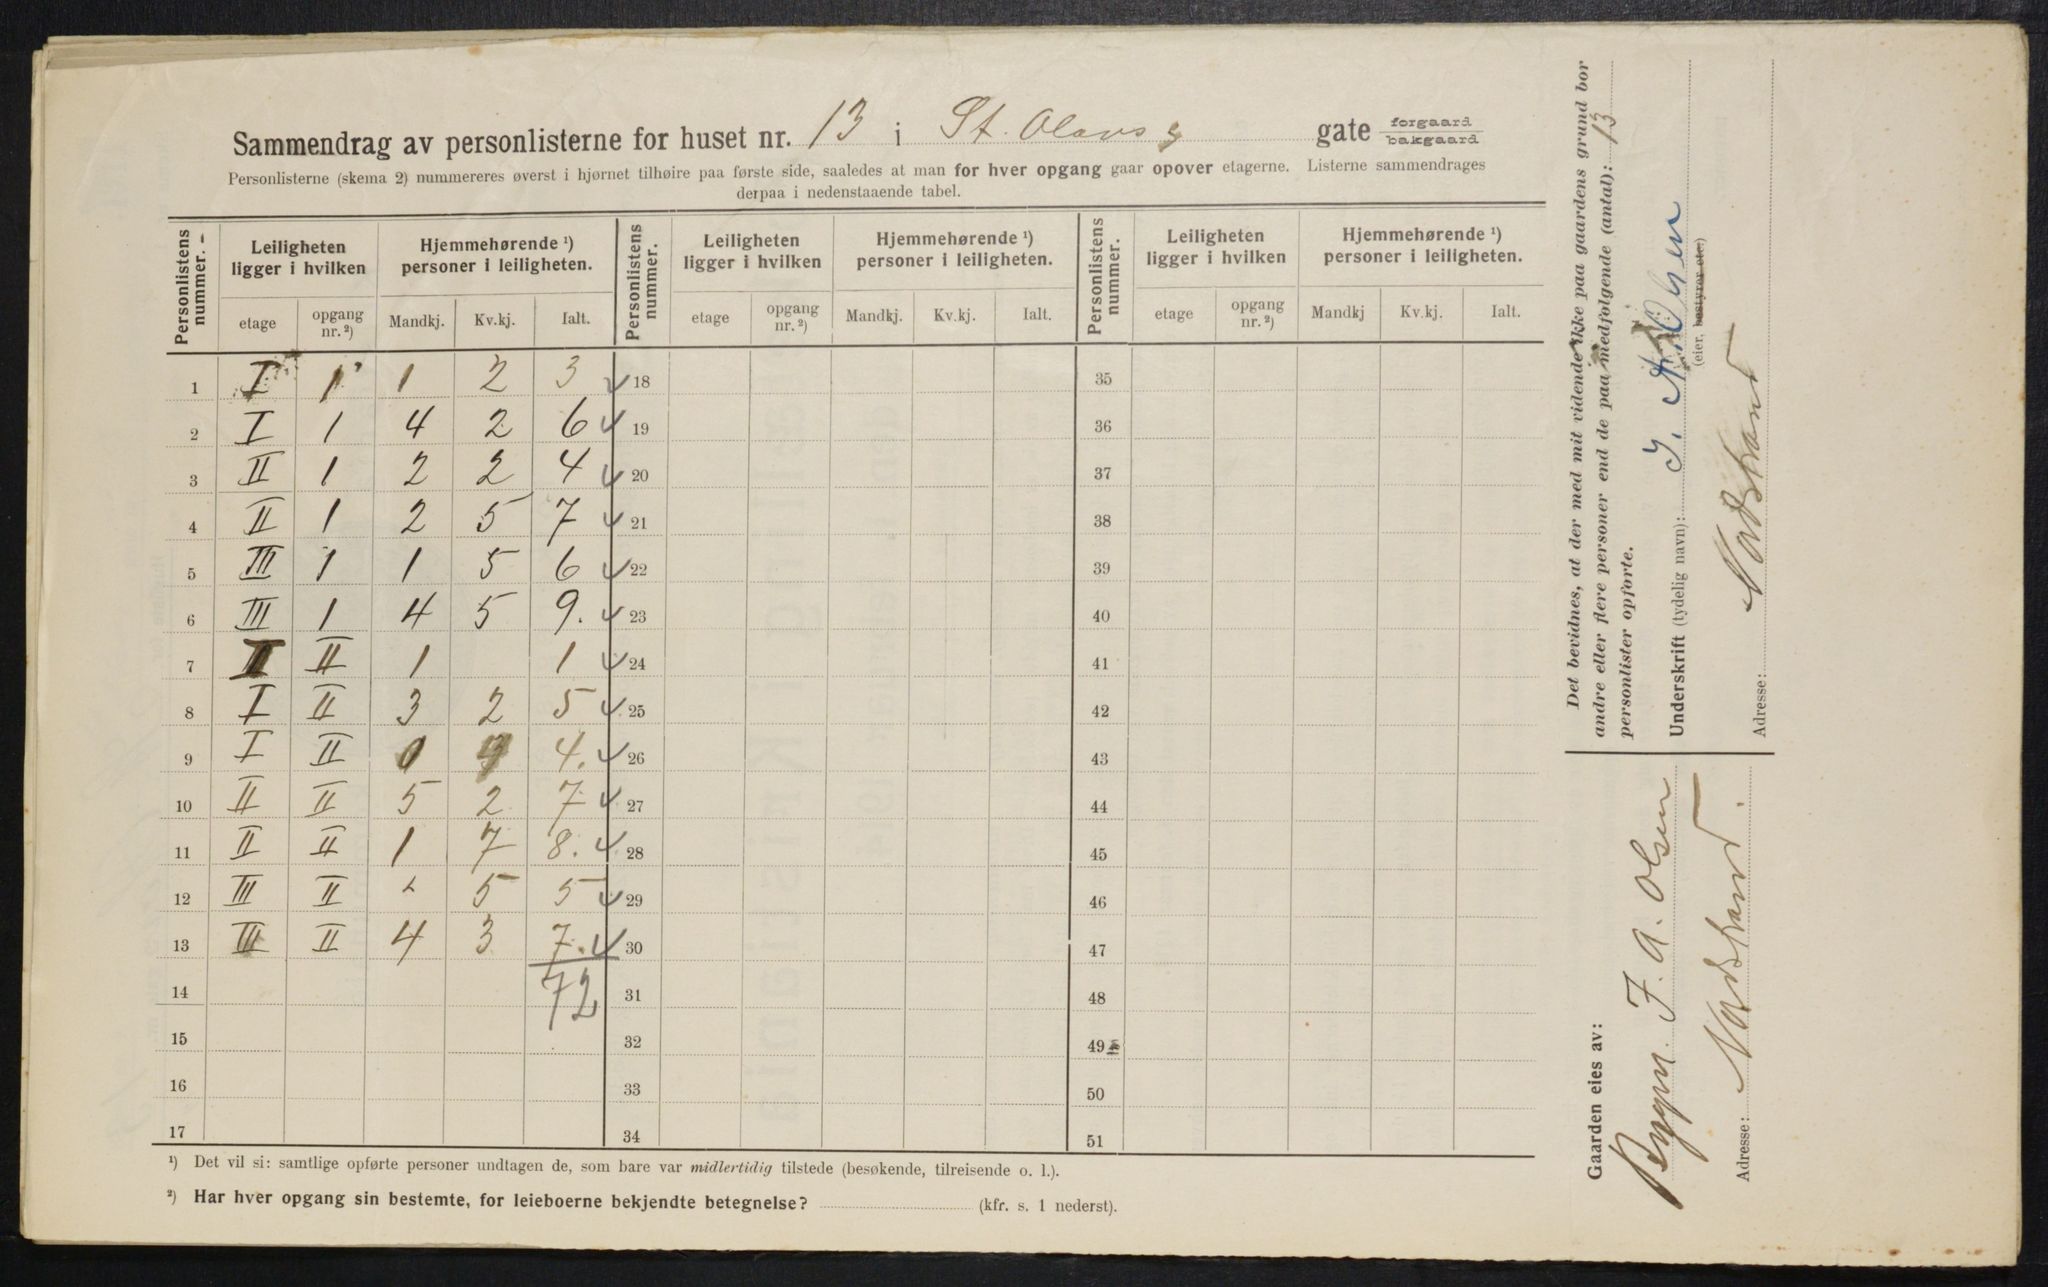 Sammendrag av personlisterne for huset nr. 13 i St. Olavs gate forgaard bakgaard
Personlisterne (skema 2) nummereres øverst i hjørnet tilhøire paa første side, saaledes at man for hver opgang gaar opover etagerne. Listerne sammendrages
derpaa i nedenstaaende tabel.
Personlistens nummer. Leiligheten ligger i hvilken Hjemmehørende ¹) personer i leiligheten. Personlistens nummer. Leiligheten ligger i hvilken Hjemmehørende ¹) personer i leiligheten. Personlistens nummer. Leiligheten ligger i hvilken Hjemmehørende ¹) personer i leiligheten.
etage opgang nr. ²) Mandkj. Kv.kj. Ialt. etage opgang nr. ²) Mandkj. Kv.kj. Ialt. etage opgang nr. ²) Mandkj Kv.kj. Ialt.
1 I 1 1 2 3 18 35
2 I 1 4 2 6 19 36
3 II 1 2 2 4 20 37
4 II 1 2 5 7 21 38
5 III 1 1 5 6 22 39
6 III 1 4 5 9. 23 40
7 II 1 1 24 41
8 I II 3 2 5 25 42
9 I II 4. 26 43
10 II II 5 2 7 27 44
11 II II 1 7 8. 28 45
12 III II - 5 5 29 46
13 III II 4 3 7. 30 47
14 72 31 48
15 32 49
16 33 50
17 34 51
¹) Det vil si: samtlige opførte personer undtagen de, som bare var midlertidig tilstede (besøkende, tilreisende o. l.).
²) Har hver opgang sin bestemte, for leieboerne bekjendte betegnelse? (kfr. s. 1 nederst).
Det bevidnes, at der med mit vidende ikke paa gaardens grund bor
andre eller flere personer end de paa medfolgende (antal): 13
personlister opførte.
Underskrift (tydelig navn): Olsen
(eier, bestyrer etc.)
Adresse: Nordstrand
Gaarden eies av:
F. A. Olsen
Adresse: Nordstrand.